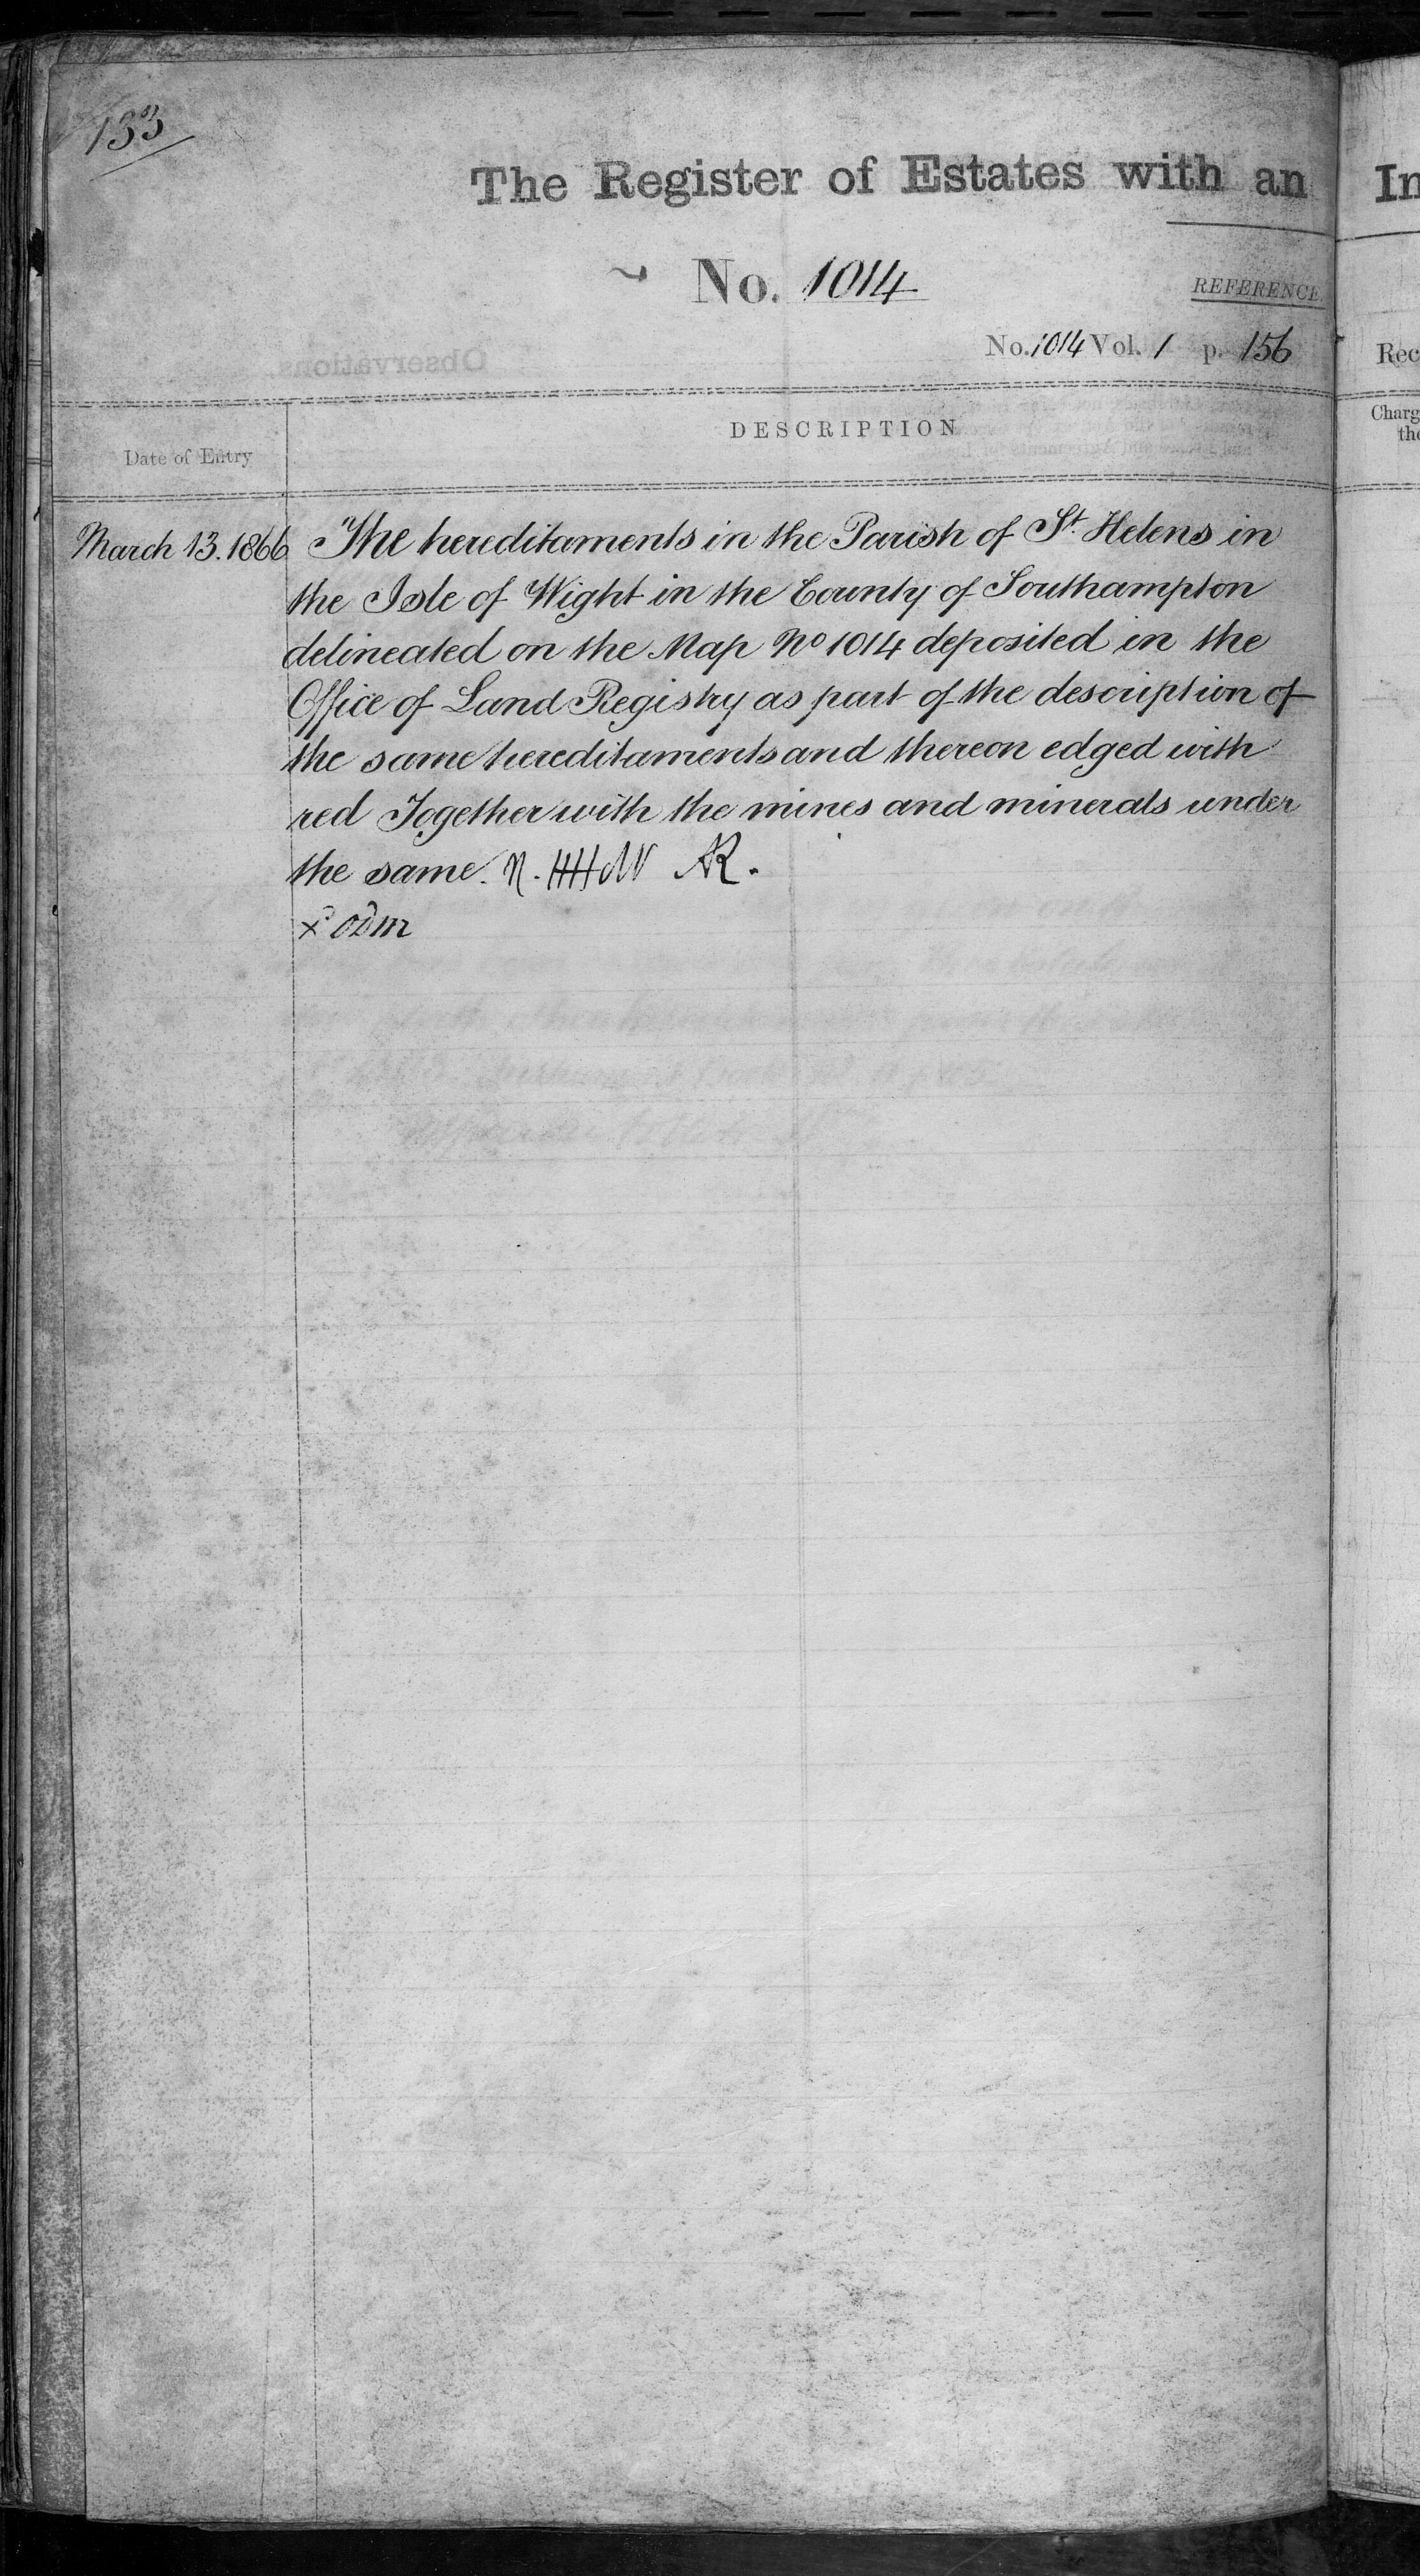 133
The Register of Estates with an
No. 1014
REFERENCE
No. 1014 Vol. 1 p. 156
DESCRIPTION
Date of Entry
March 13. 1866
The hereditaments in the Parish of St. Helens in
the Isle of Wight in the County of Southampton
delineated on the Map No 1014 deposited in the
Office of Land Registry as part of the description of
the same hereditaments and thereon edged with
red Together with the mines and minerals under
the same.
In
Rec
Charg
the